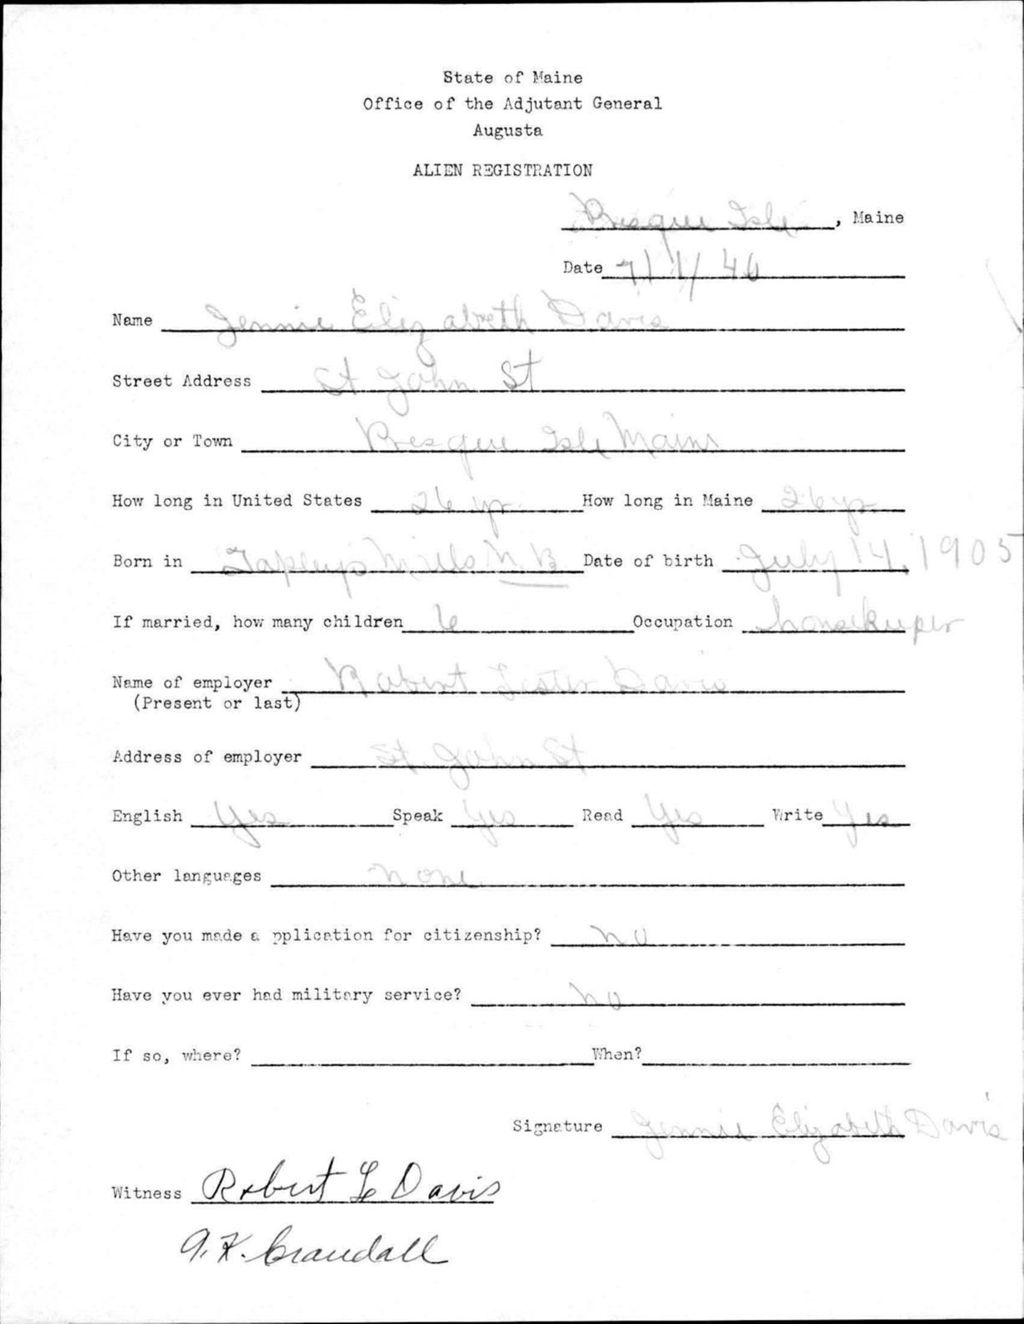 State of Maine
Office of the Adjutant General
Augusta
ALIEN REGISTRATION
Presque Isle, Maine
Date 7/1/40
Name Jennie Elizabeth Davis
Street Address St John St
City or Town Presque Isle Maine
How long in United States 26 yr. How long in Maine 26 yr.
Born in Tapleys Mills N.B Date of birth July 14, 1905
If married, how many children 6 Occupation housekeeper
Name of employer Robert Lester Davis
(Present or last)
Address of employer St. John St
English Yes Speak Yes Read Yes Write Yes
Other languages none
Have you made a pplication for citizenship? no
Have you ever had military service? no
If so, where? When?
Signature Jennie Elizabeth Davis
Witness Robert L Davis
A. K. Crandall